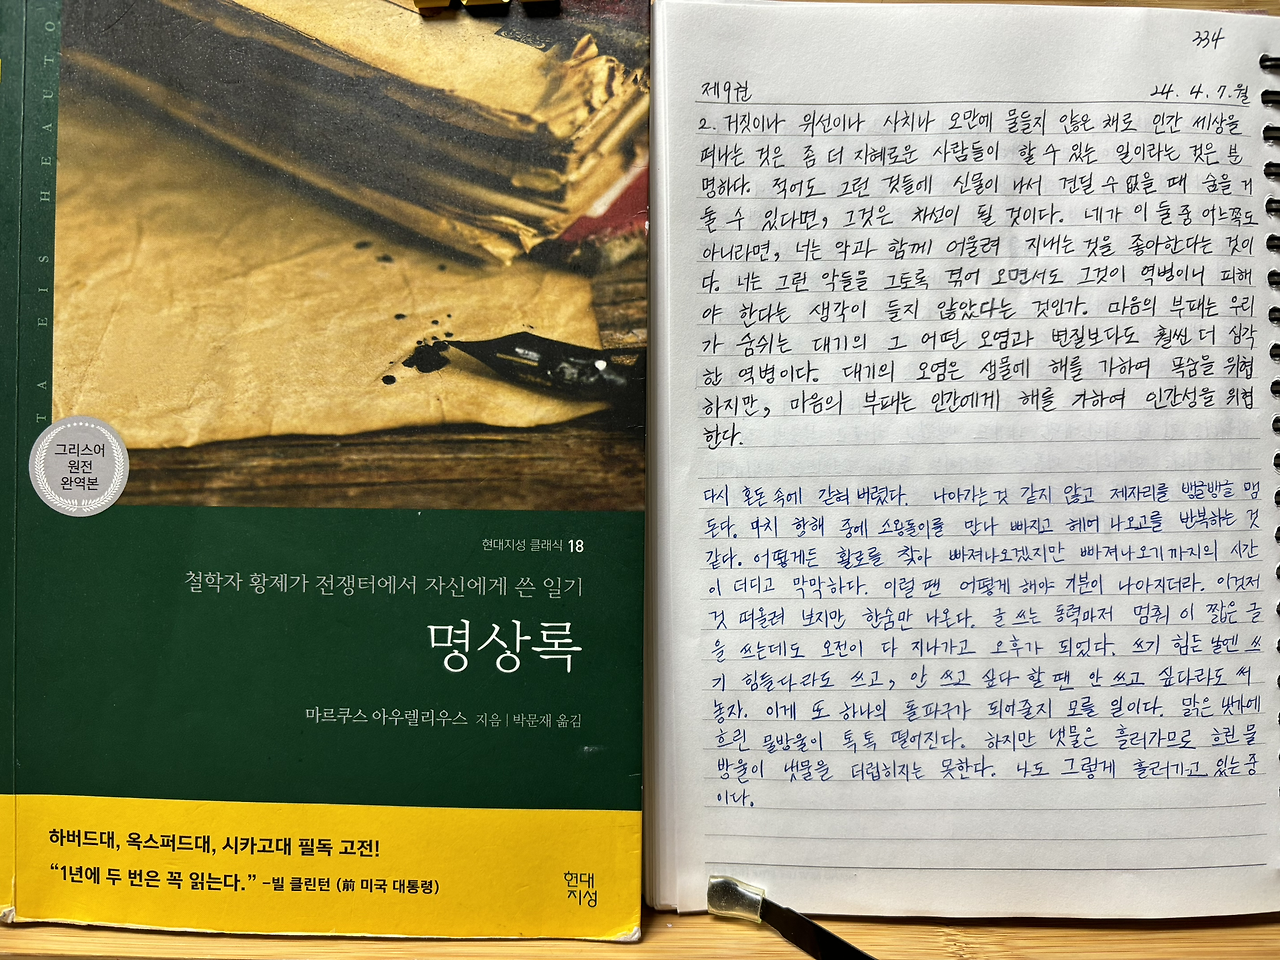 TA EIS HEAUTO
그리스어
원전
완역본
현대지성 클래식 18
철학자 황제가 전쟁터에서 자신에게 쓴 일기
명상록
마르쿠스 아우렐리우스 지음 | 박문재 옮김
하버드대, 옥스퍼드대, 시카고대 필독 고전!
“1년에 두 번은 꼭 읽는다.” –빌 클린턴 (前 미국 대통령)
현대
지성
334
제9권 24. 4. 7. 월
2. 거짓이나 위선이나 사치나 오만에 물들지 않은 채로 인간 세상을
떠나는 것은 좀 더 지혜로운 사람들이 할 수 있는 일이라는 것은 분
명하다. 적어도 그런 것들에 신물이 나서 견딜 수 없을 때 숨을 거
둘 수 있다면, 그것은 차선이 될 것이다. 네가 이 둘 중 어느쪽도
아니라면, 너는 악과 함께 어울려 지내는 것을 좋아한다는 것이
다. 너는 그런 악들을 그토록 겪어 오면서도 그것이 역병이니 피해
야 한다는 생각이 들지 않았다는 것인가. 마음의 부패는 우리
가 숨쉬는 대기의 그 어떤 오염과 변질보다도 훨씬 더 심각
한 역병이다. 대기의 오염은 생물에 해를 가하여 목숨을 위협
하지만, 마음의 부패는 인간에게 해를 가하여 인간성을 위협
한다.
다시 혼돈 속에 갇혀 버렸다. 나아가는 것 같지 않고 제자리를 빙글빙글 맴
돈다. 마치 항해 중에 소용돌이를 만나 빠지고 헤어 나오고를 반복하는 것
같다. 어떻게든 활로를 찾아 빠져나오겠지만 빠져나오기까지의 시간
이 더디고 막막하다. 이럴 땐 어떻게 해야 기분이 나아지더라. 이것저
것 떠올려 보지만 한숨만 나온다. 글 쓰는 동력마저 멈춰 이 짧은 글
을 쓰는데도 오전이 다 지나가고 오후가 되었다. 쓰기 힘든 날엔 쓰
기 힘들다라도 쓰고, 안 쓰고 싶다 할 땐 안 쓰고 싶다라도 써
놓자. 이게 또 하나의 돌파구가 되어줄지 모를 일이다. 맑은 냇가에
흐린 물방울이 톡톡 떨어진다. 하지만 냇물은 흘러가므로 흐린 물
방울이 냇물을 더럽히지는 못한다. 나도 그렇게 흘러가고 있는 중
이다.